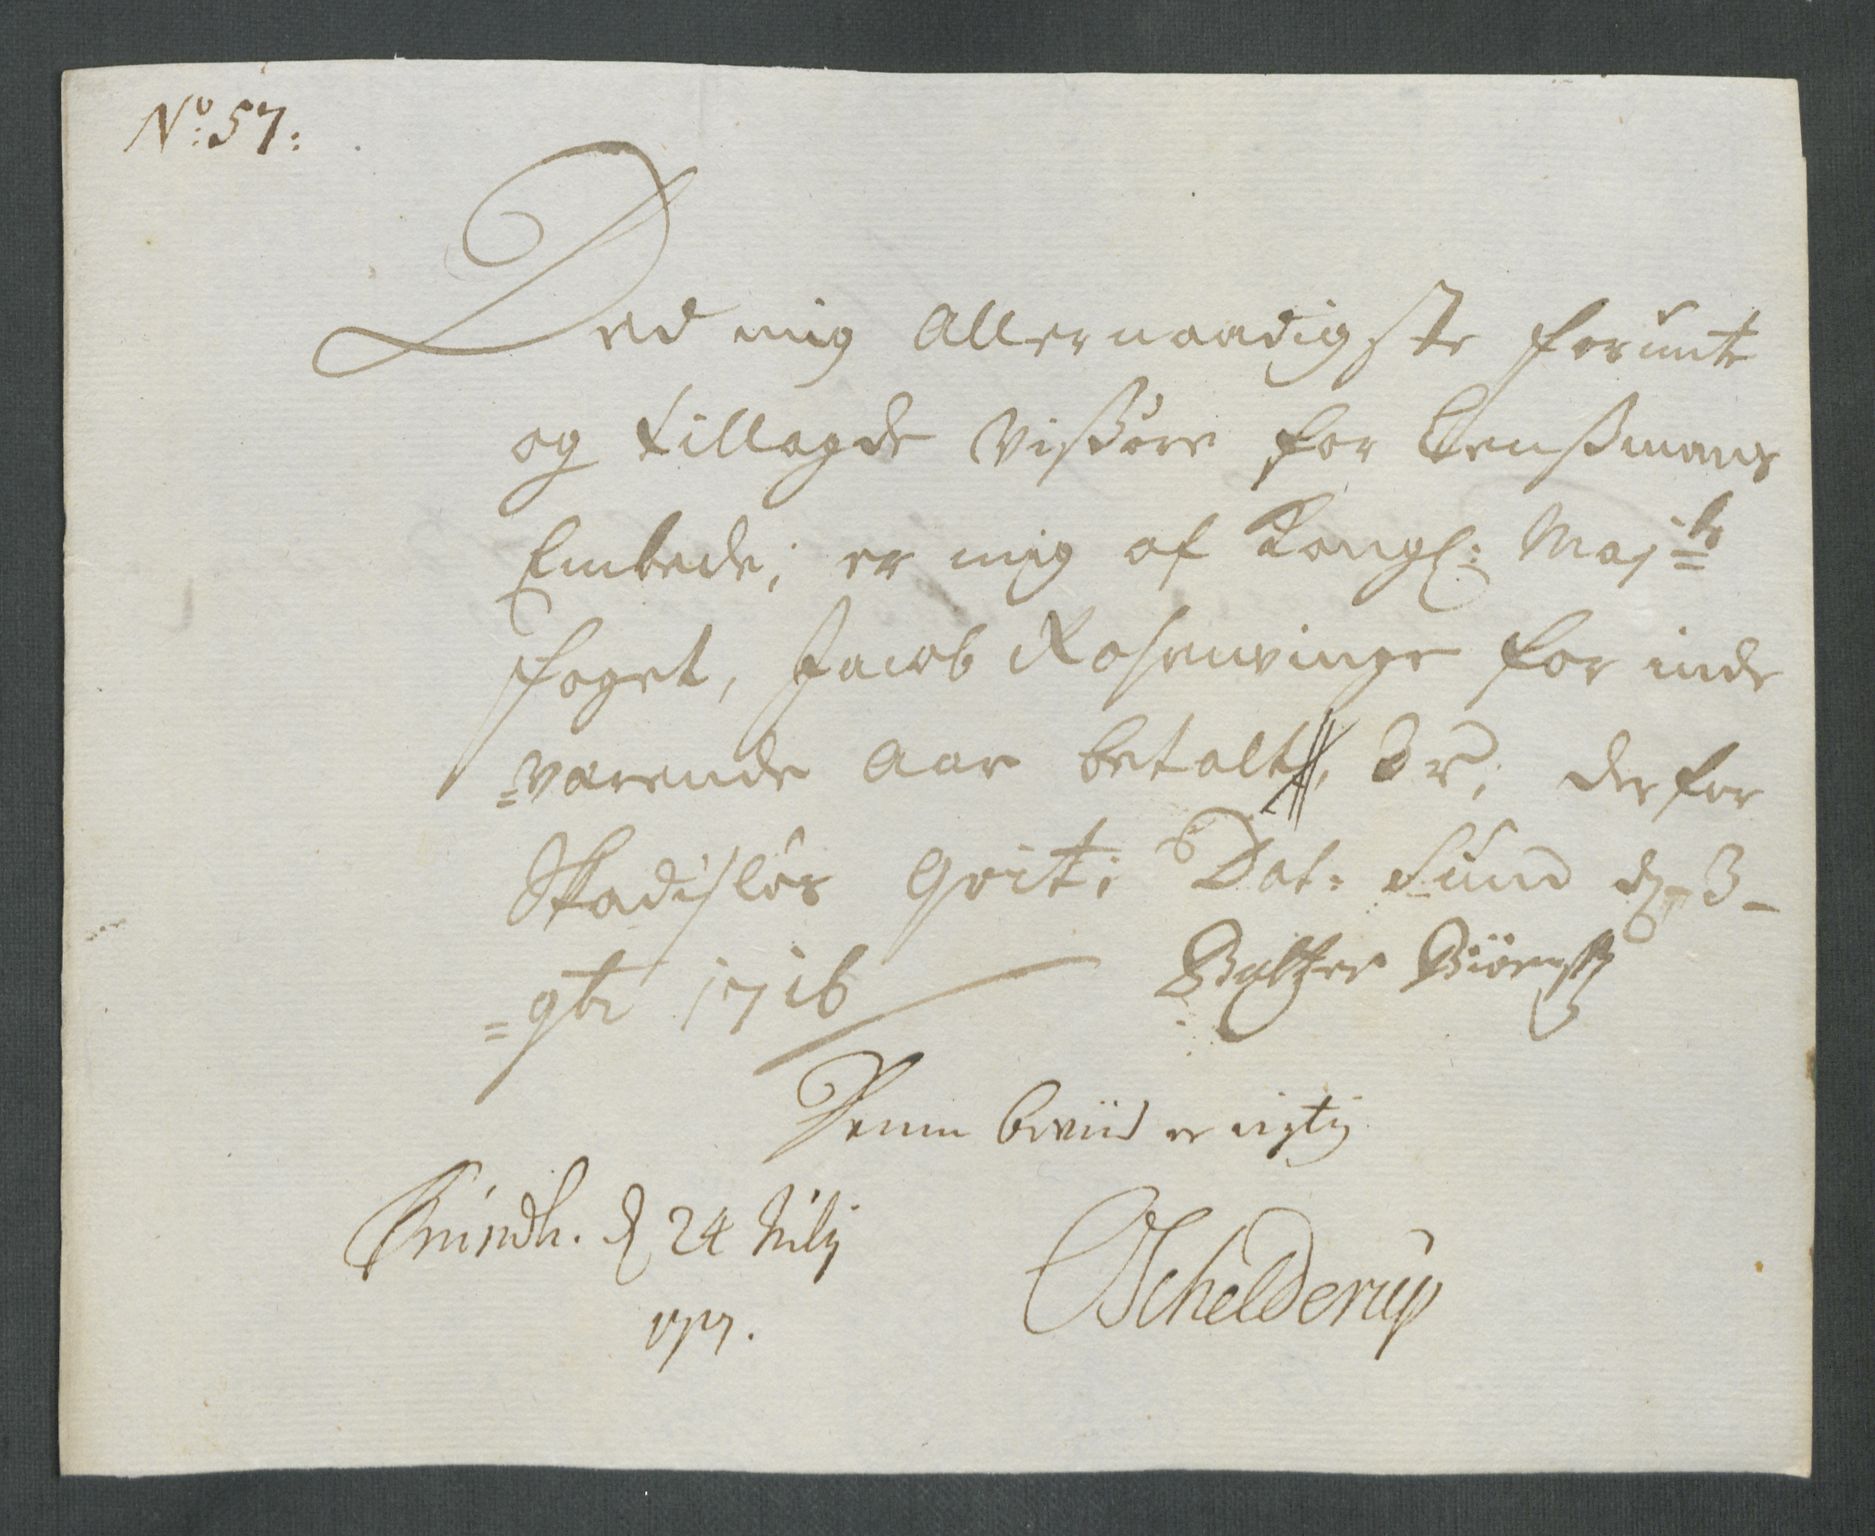 No: 57:
Ded mig Allernaadigste forunte
og tillagde Visøre for Lensmans
Embede; er mig af Kongl: Maj:ts
foget, Jacob Rosenvinge for inde
=værende Aar betalt, 3 r; derfor
Skadisløs Qvit: Dat: Sund d: 3 -
=9br 1716 Baltzer Biørns
Denne beviis er rigtig
Trundh. d 24 July
1717. OSchelderup